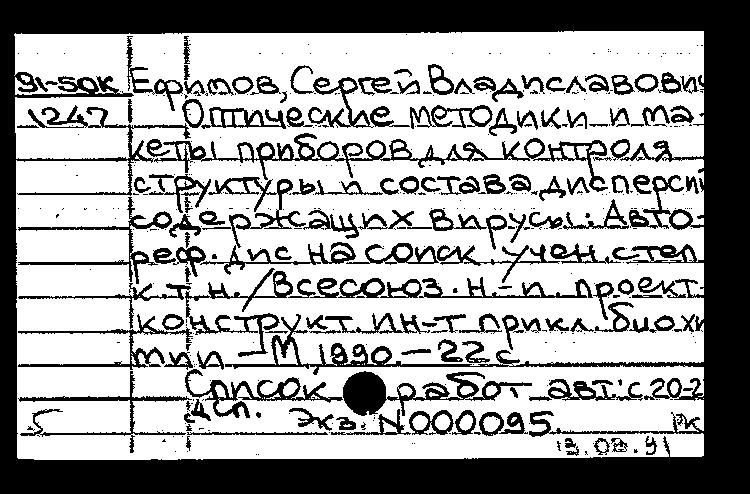 91-50к Ефимов, Сергей Владиславович
1247 Оптические методики и ма-
кеты приборов для контроля
структуры и состава дисперсий
содержащих вирусы: Авто-
реф. дис. на соиск. учен. степ.
к.т.н. / Всесоюз. н.-и. проект.-
конструкт. ин-т прикл. биохи
мии. — М., 1990. — 22 с.
Список работ авт.: с. 20-2
Дсп. Экз. N000095.
5 РК
13.08.91